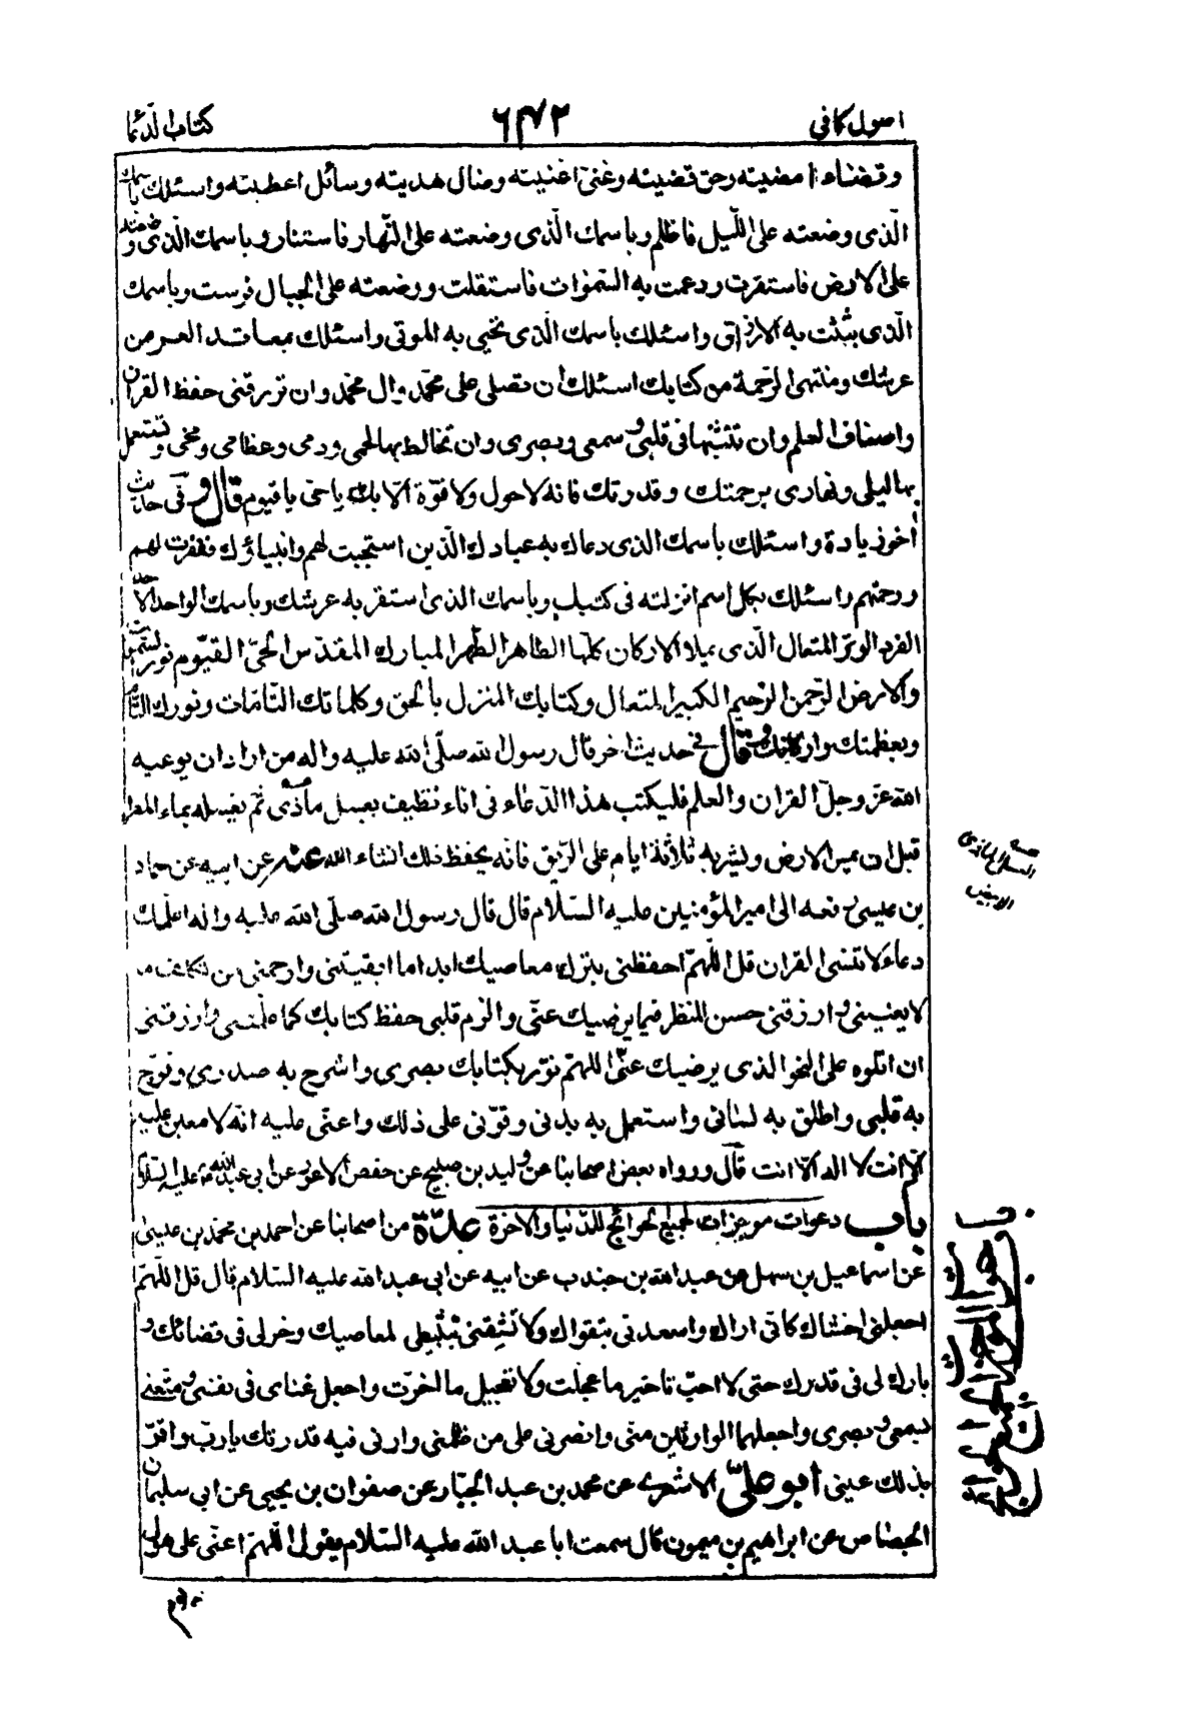 اصول كافى
٦٧٢
كتاب الدعا
وقضاء امضيته وحق قضيته وغنى اغنيته وضال هديته وسائل اعطيته واسئلك باسمك
الّذى وضعته على اللّيل فاظلم وباسمك الّذى وضعته على النّهار فاستنار وباسمك الّذى وضعته
على الارض فاستقرت ودعمت به السّموات فاستقلت ووضعته على الجبال فرست وباسمك
الّذى بثثت به الارزاق واسئلك باسمك الّذى تحيى به الموتى واسئلك بمعاقد العز من
عرشك ومنتهى الرّحمة من كتابك اسئلك ان تصلى على محمّد وال محمّد وان ترزقنى حفظ القران
واصناف العلم وان تثبتها فى قلبى وسمعى وبصرى وان تخالط بها لحمى ودمى وعظامى ومخى وتستعمل
بها ليلى ونهارى برحمتك وقدرتك فانه لا حول ولا قوّة الّا بك يا حى يا قيوم قال وفى حديث
أخر زيادة واسئلك باسمك الذى دعاك به عبادك الّذين استجبت لهم وانبياؤك فغفرت لهم
ورحمتهم واسئلك بكل اسم انزلته فى كتبك وباسمك الذى استقر به عرشك وباسمك الواحد الاحد
الفرد الوتر المتعال الّذى يملا الاركان كلّها الطّاهر الطّهر المبارك المقدّس الحىّ القيّوم نور السّموات
والارض الرّحمن الرّحيم الكبير المتعال وكتابك المنزل بالحق وكلماتك التّامّات ونورك التام
وبعظمتك واركانك وقال فى حديث اخر قال رسول الله صلّى الله عليه واله من اراد ان يوعيه
الله عزّ وجلّ القران والعلم فليكتب هذا الدّعاء فى اناء نظيف بعسل ماذىّ ثمّ يغسله بماء المطر
قبل ان يمس الارض ويشربه ثلاثة ايام على الرّيق فانّه يحفظ ذلك انشاء الله عنه عن ابيه عن حماد
بن عيسى رفعه الى امير المؤمنين عليه السّلام قال قال رسول الله صلّى الله عليه واله اعلّمك
دعاء لا تنسى القران قل اللّهمّ احفظنى بترك معاصيك ابدا ما ابقيتنى وارحمنى من تكلف ما
لا يعنينى وارزقنى حسن النظر فيما يرضيك عنّى والزم قلبى حفظ كتابك كما علّمتنى وارزقنى
ان اتلوه على النحو الذى يرضيك عنّى اللهمّ نوّر بكتابك بصرى واشرح به صدرى وفرّج
به قلبى واطلق به لسانى واستعمل به بدنى وقوّنى على ذلك واعنّى عليه انّه لا معين عليه
الّا انت لا اله الّا انت قال ورواه بعض اصحابنا عن وليد بن صبيح عن حفص الاعور عن ابى عبد الله عليه السّلام
باب دعوات موجزات لجميع الحوائج للدّنيا والاخرة عدّة من اصحابنا عن احمد بن محمّد بن عيسى
عن اسماعيل بن سهل عن عبد الله بن جندب عن ابيه عن ابى عبد الله عليه السّلام قال قل اللّهمّ
اجعلنى اخشاك كانّى اراك واسعدنى بتقواك ولا تشقنى بنشطى لمعاصيك وخر لى فى قضائك و
بارك لى فى قدرك حتى لا احبّ تاخير ما عجلت ولا تعجيل ما اخّرت واجعل غناى فى نفسى ومتّعنى
بسمعى وبصرى واجعلهما الوارثين منّى وانصرنى على من ظلمنى وارنى فيه قدرتك يا ربّ واقرّ
بذلك عينى أبو علىّ الاشعرى عن محمد بن عبد الجبّار عن صفوان بن يحيى عن ابى سليمان
الجصّاص عن ابراهيم بن ميمون قال سمعت ابا عبد الله عليه السّلام يقول اللّهمّ اعنّى على هول
العسل الماذى
الابيض